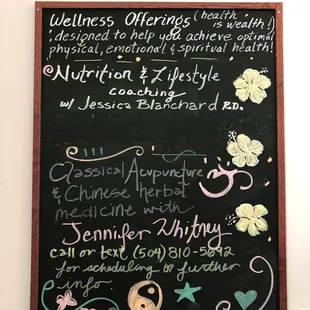 Wellness Offerings (health
is wealth!)
designed to help you achieve optimal
physical, emotional & spiritual health!
Nutrition & Lifestyle
coaching
w/ Jessica Blanchard RD.
Classical Acupuncture
& Chinese herbal
medicine with
Jennifer Whitney
call or text (504) 810-5692
for scheduling or further
info